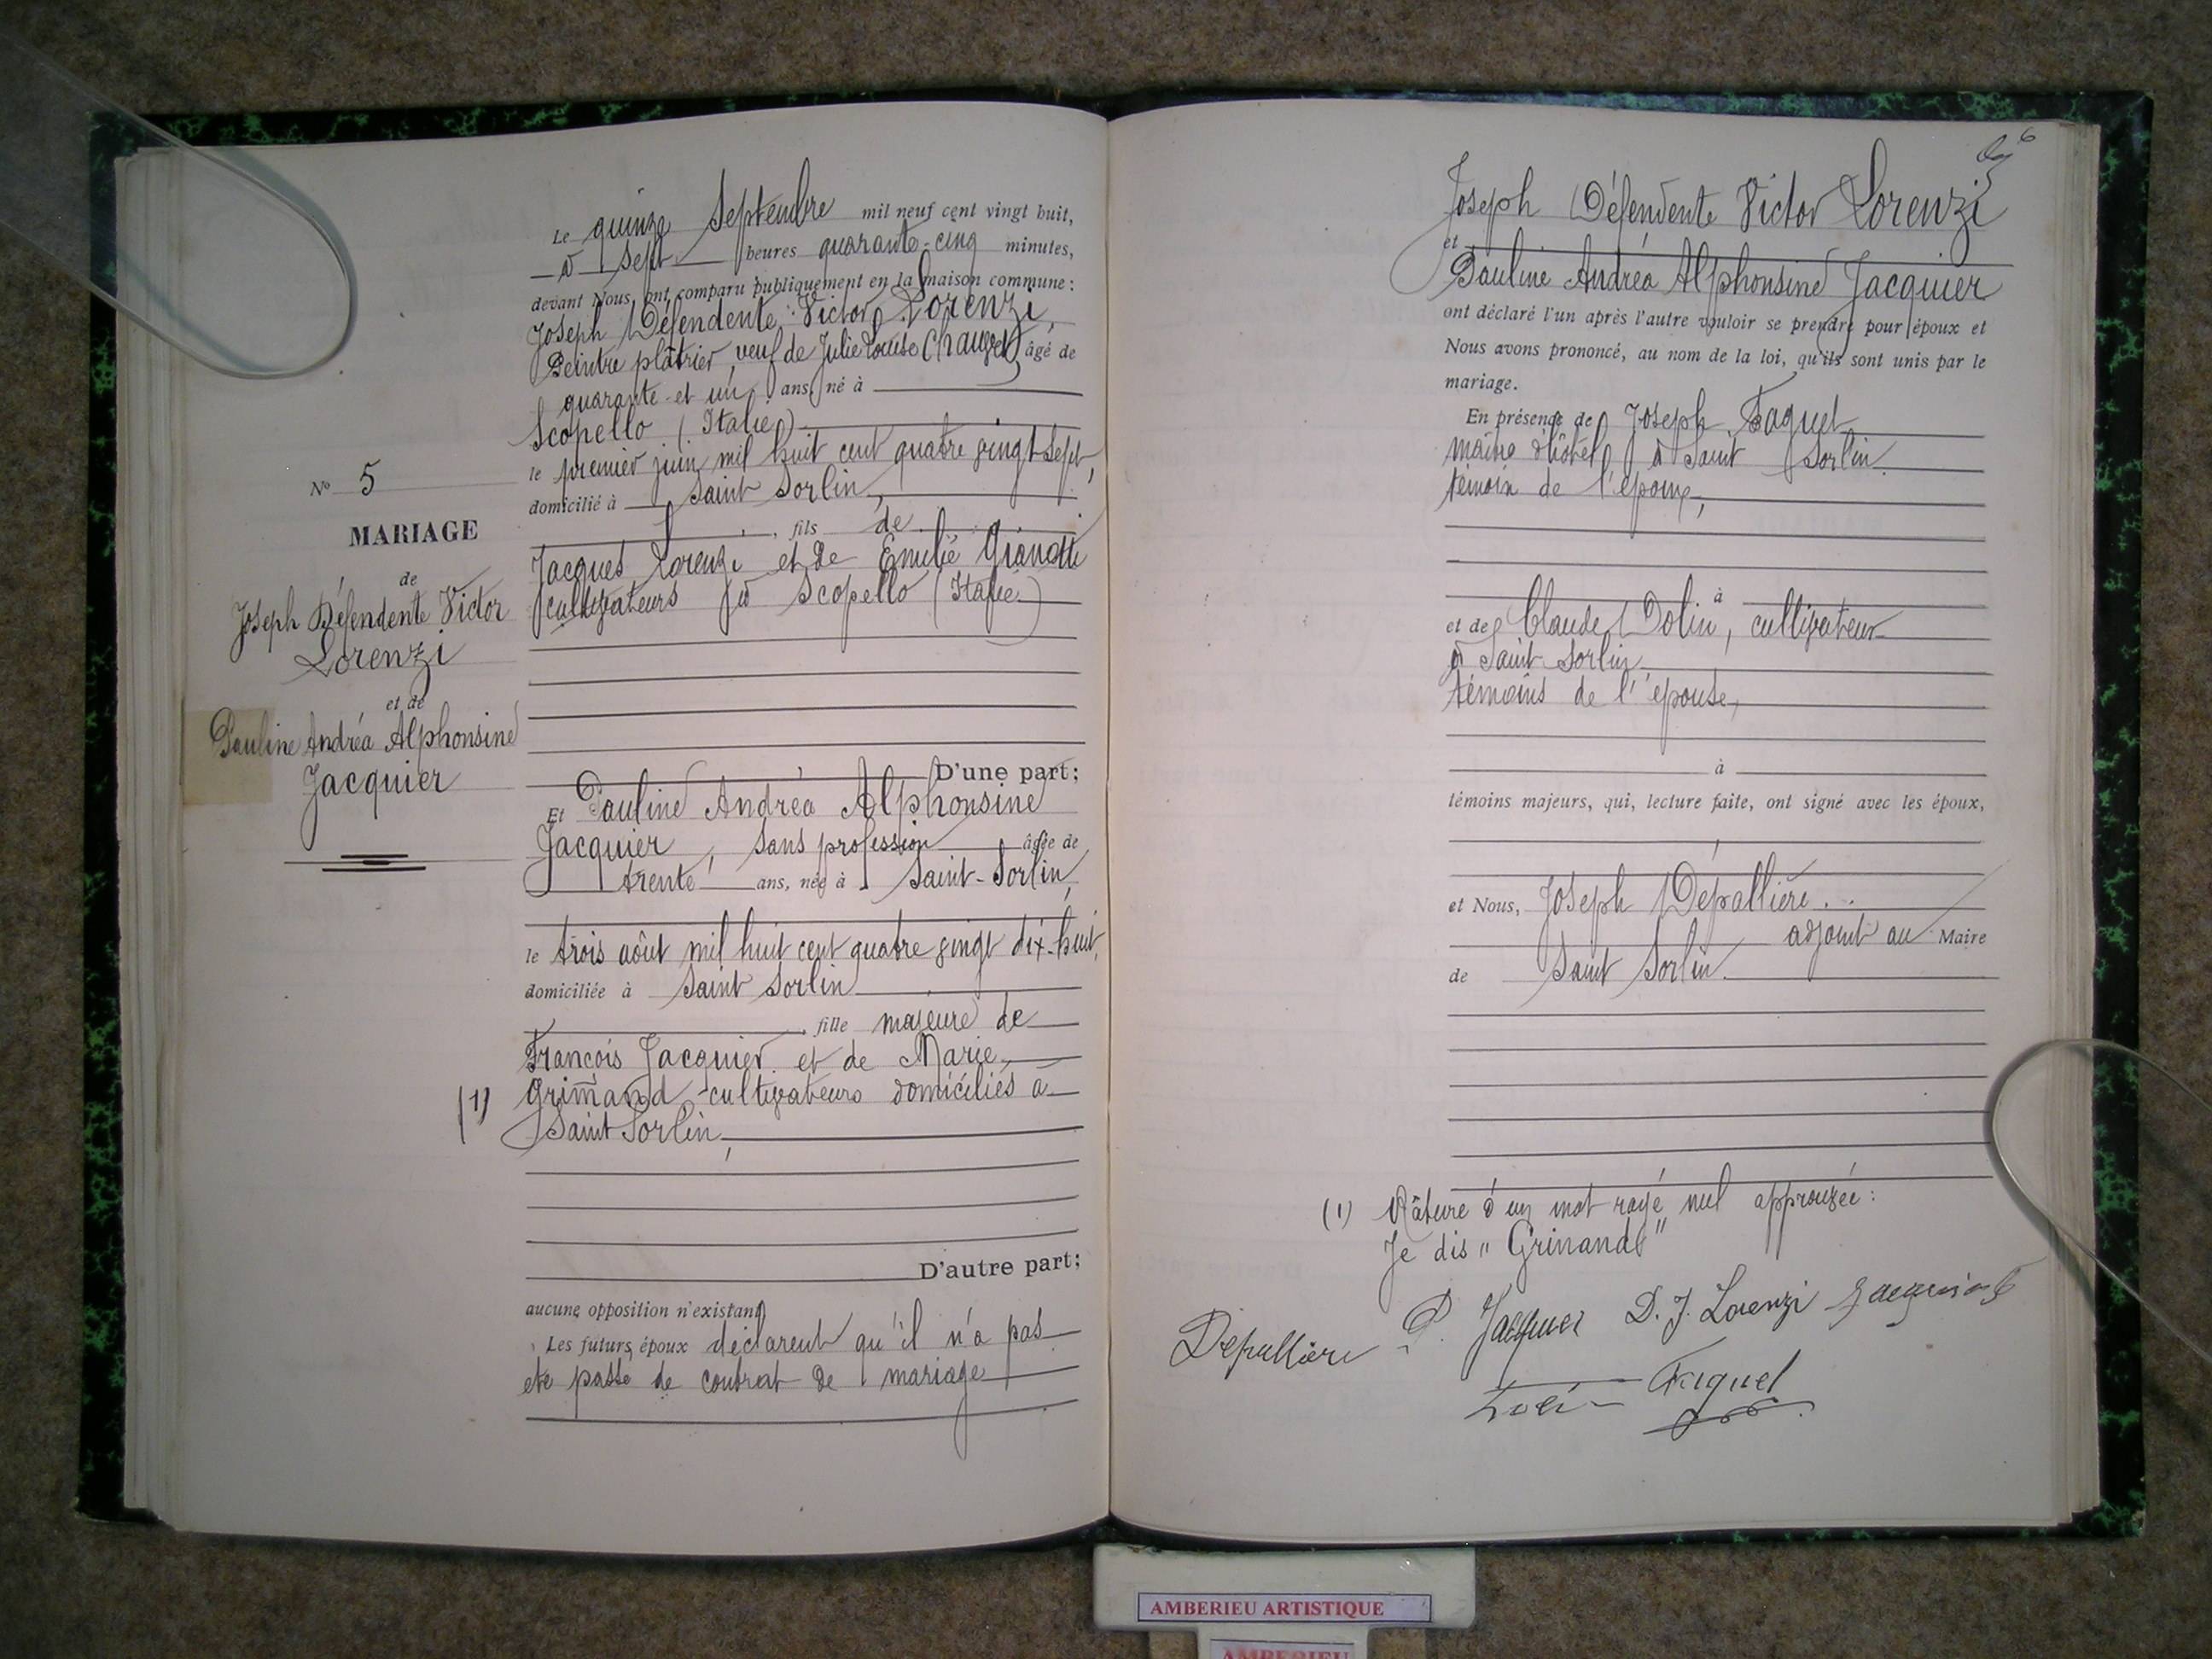 N° 5
MARIAGE
de
Joseph Défendente Victor
Lorenzi
et de
Pauline Andréa Alphonsine
Jacquier
Le quinze Septembre mil neuf cent vingt huit,
à sept heures quarante-cinq minutes,
devant Nous ont comparu publiquement en la maison commune :
Joseph Défendente Victor Lorenzi,
Peintre plâtrier, veuf de Julie Louise âgé de
quarante et un ans, né à
Scopello (Italie)
le premier juin mil huit cent quatre vingt sept,
domicilié à Saint Sorlin,
, fils de
Jacques Lorenzi et de Emilie Gianotti
cultivateurs à Scopello (Italie)
D'une part;
Et Pauline Andréa Alphonsine
Jacquier, sans profession âgée de
trente ans, née à Saint-Sorlin,
le trois août mil huit cent quatre vingt dix-huit,
domiciliée à Saint Sorlin
, fille majeure de
François Jacquier et de Marie
(1) Grimand cultivateurs domiciliés à
Saint Sorlin,
D'autre part;
aucune opposition n'existant
Les futurs époux déclarent qu'il n'a pas
été passé de contrat de mariage
6
Joseph Défendente Victor Lorenzi
et
Pauline Andréa Alphonsine Jacquier
ont déclaré l'un après l'autre vouloir se prendre pour époux et
Nous avons prononcé, au nom de la loi, qu'ils sont unis par le
mariage.
En présence de Joseph Faquet
maître d'hôtel à Saint Sorlin
témoin de l'époux,
à
et de Claude Dolin, cultivateur
à Saint Sorlin
témoins de l'épouse,
à
témoins majeurs, qui, lecture faite, ont signé avec les époux,
et Nous, Joseph Depallière
adjoint au Maire
de Saint Sorlin.
(1) Râture d'un mot rayé nul approuvée :
Je dis "Grinand"
Depallière P. Jacquier D. J. Lorenzi Jacquier
Faquet
AMBERIEU ARTISTIQUE
AMBERIEU